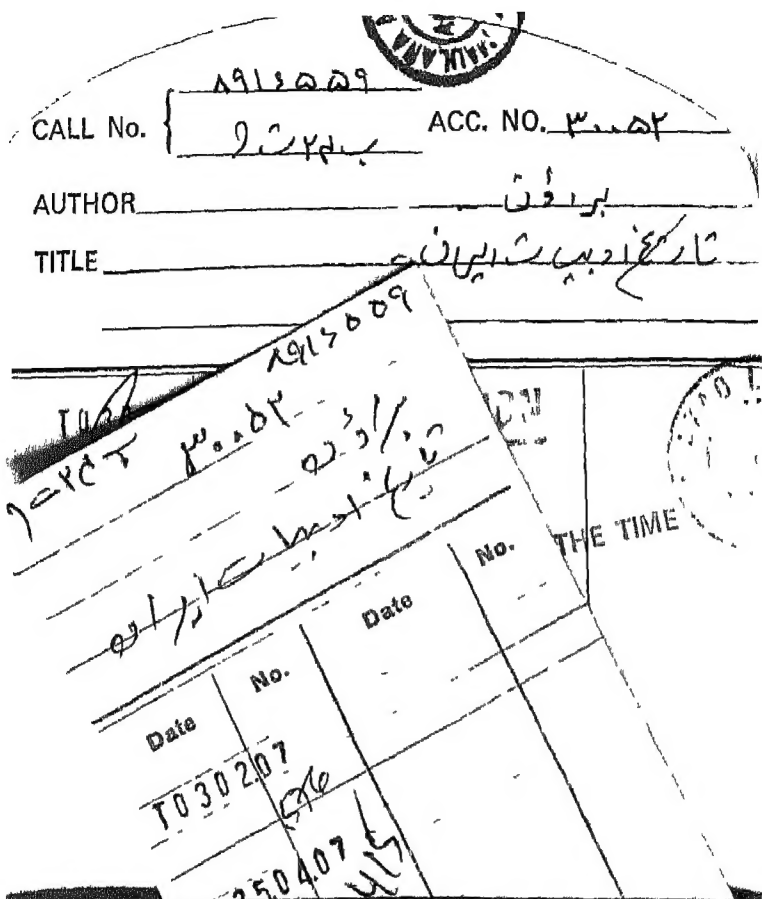 MAULANA
۸۹۱۶۵۵۹
CALL No. { ACC. NO. ۳۰۰۵۲
AUTHOR براؤن
TITLE تاریخ ادبیات ایران
۸۹۱۶۵۵۹
۳۰۰۵۲
براؤن
تاریخ ادبیات ایران
THE TIME
Date No. Date No.
T030207
250407